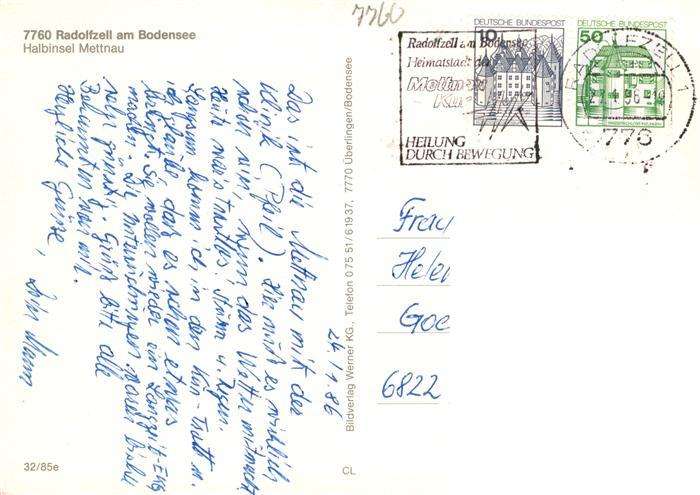 7760 Radolfzell am Bodensee
Halbinsel Mettnau
7760
DEUTSCHE BUNDESPOST
10
DEUTSCHE BUNDESPOST
50
Radolfzell am Bodensee
Heimatstadt der
Mettnau
Kur
HEILUNG
DURCH BEWEGUNG
RADOLFZELL 1
7760
26/1.86
Das ist die Mettnau mit der
Klinik (Pfeil). Hier wird es wirklich
schön sein, wenn das Wetter mitmacht.
Sturm u. Regen.
Langsam komm ich in den Kur-Trott u.
ich glaube, daß es schon etwas
Sie wollen wieder ein Langzeit-EKG
machen. Die waren bisher
sehr günstig. Grüß bitte alle
Bekannten von mir.
Herzliche Grüße,
Dein Mann
Bildverlag Werner KG., Telefon 0 75 51/6 19 37, 7770 Überlingen/Bodensee
Frau
Hele
Goe
6822
32/85e
CL